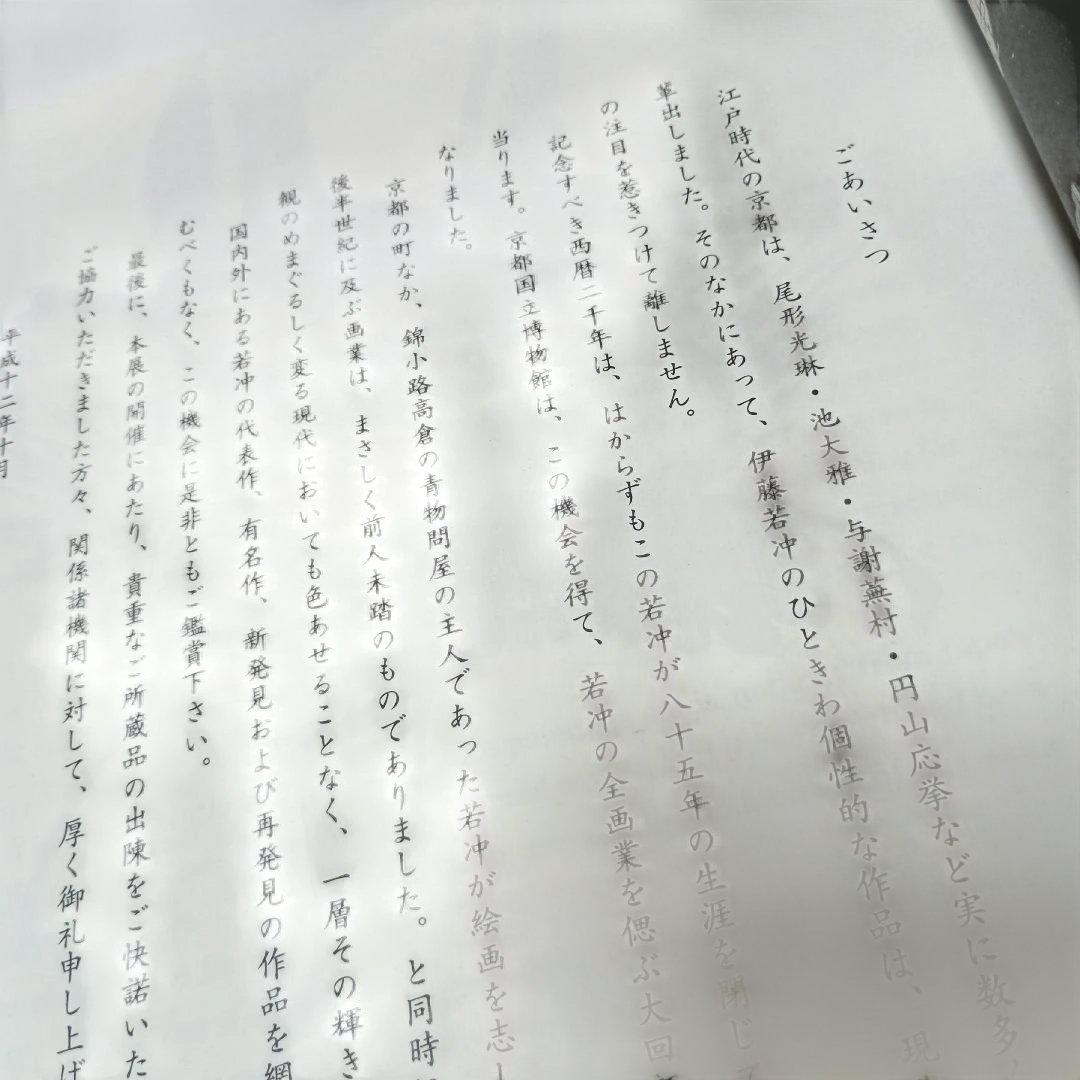 ごあいさつ
江戸時代の京都は、尾形光琳・池大雅・与謝蕪村・円山応挙など実に数多
輩出しました。そのなかにあって、伊藤若冲のひときわ個性的な作品は、現
の注目を惹きつけて離しません。
記念すべき西暦二千年は、はからずもこの若冲が八十五年の生涯を閉じて
当ります。京都国立博物館は、この機会を得て、若冲の全画業を偲ぶ大回
なりました。
京都の町なか、錦小路高倉の青物問屋の主人であった若冲が絵画を志し
後半世紀に及ぶ画業は、まさしく前人未踏のものでありました。と同時
観のめまぐるしく変る現代においても色あせることなく、一層その輝き
国内外にある若冲の代表作、有名作、新発見および再発見の作品を網
むべくもなく、この機会に是非ともご鑑賞下さい。
最後に、本展の開催にあたり、貴重なご所蔵品の出陳をご快諾いた
ご協力いただきました方々、関係諸機関に対して、厚く御礼申し上げ
平成十二年十月